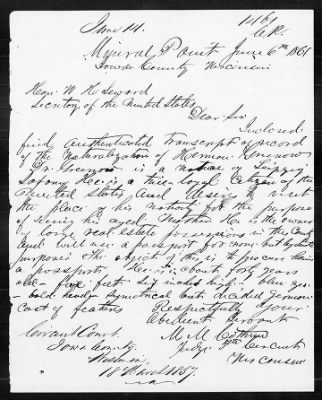 June 14.
1461
C.R.
Mineral Point June 6th 1861
Iowa County Wisconsin
Hon. W H Seward
Secretary of the United States
Dear Sir
Inclosed
find authenticated transcript of record
of the Naturalization of Herman
Dr. is a native of Leipzig
Saxony He is a true loyal Citizen of the
United States and desires to visit
the place of his nativity for the purpose
of seeing his aged Mother He is the owner
of large real estate possessions in this County
and will use a passport for none but legitimate
purposes The object of this is to procure him
a passport. He is about forty years
old – five feet six inches high – blue eyes
– bald head – symetrical but decided German
cast of features Respectfully your
Obedient Servant
M. M. Cothren
Judge 5th Circuit
Wisconsin
Circuit Court
Iowa County
Wisconsin
18 March 1857.